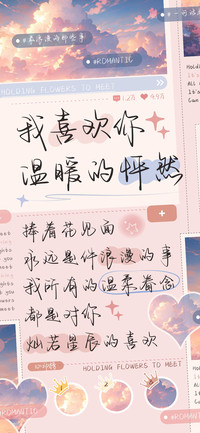 #ROMANTIC
HOLDING FLOWERS TO MEET
我喜欢你
温暖的怦然
捧着花见面
永远是件浪漫的事
我所有的温柔眷念
都是对你
灿若星辰的喜欢
HOLDING FLOWERS TO MEET
#ROMANTIC